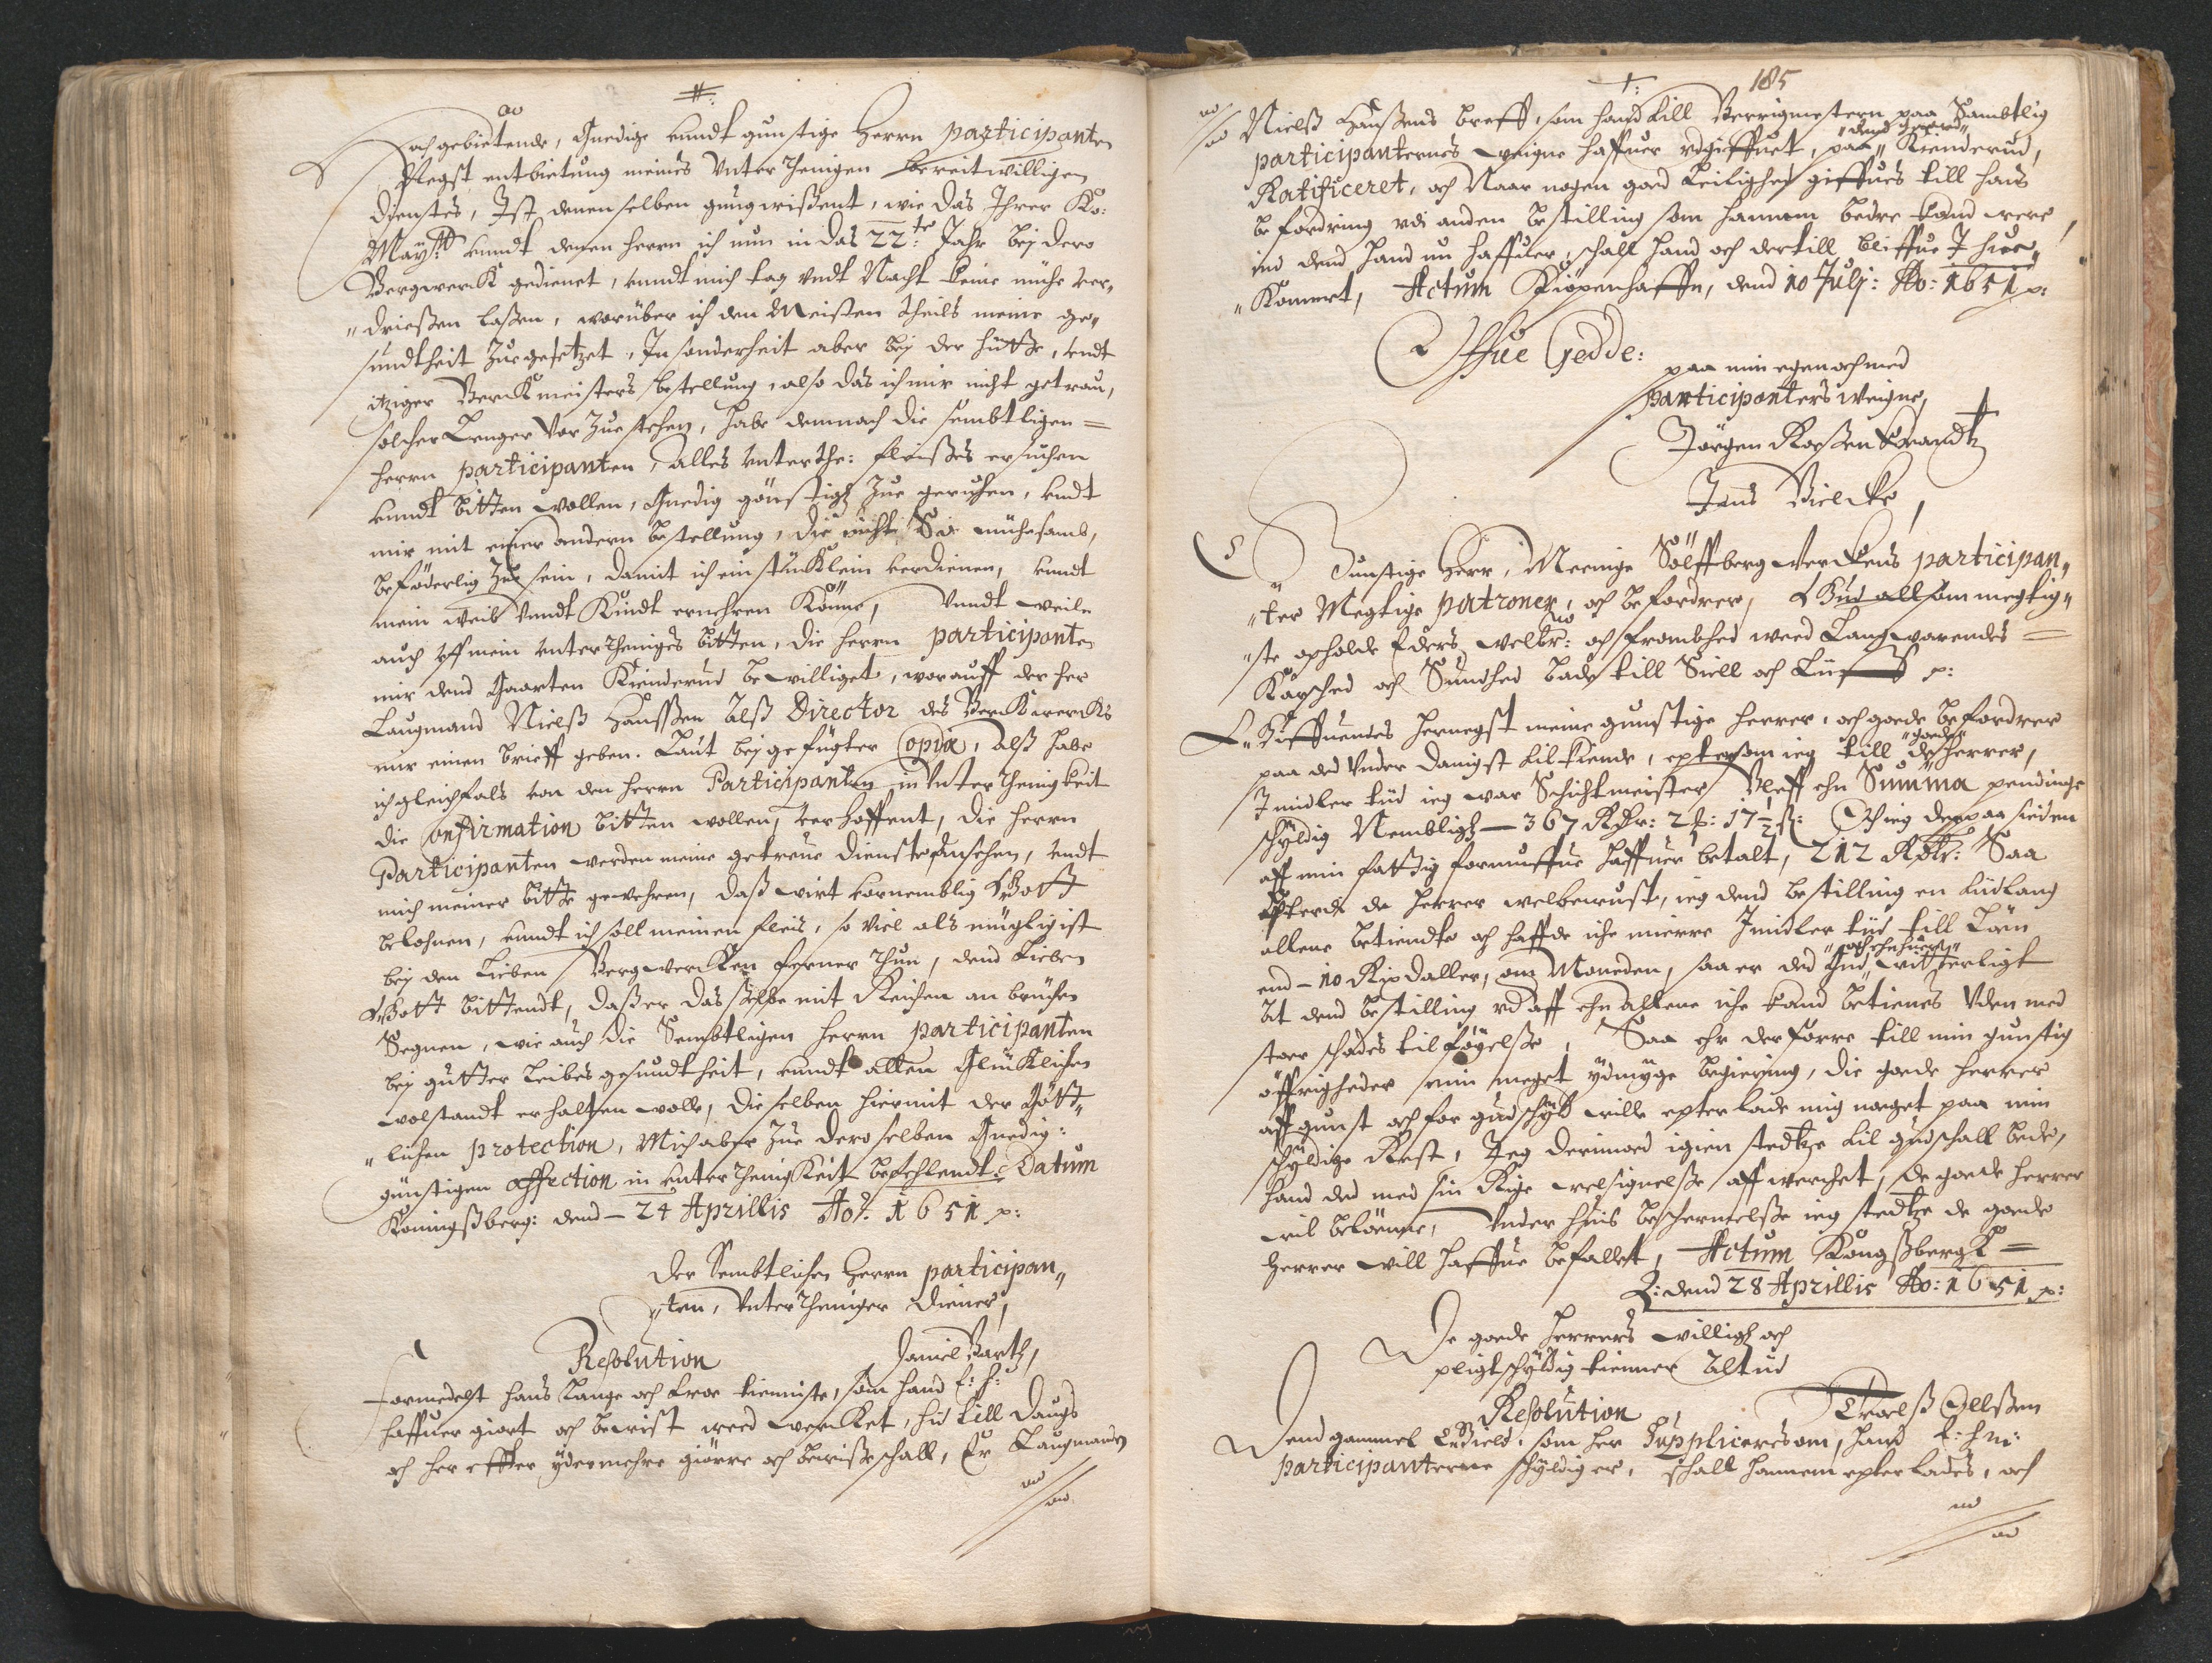 Hochgebietende, Gnedige undt gunstige Herrn participanten
Negst entbietung meines Unterthenigen bereitwilligen
Dienstes, Ist denenselben gnug wißent, wie das Ihrer Kö:
Mayst: undt denen Herrn ich nun in das 22.te Jahr bej dero
Bergwerck gedienet, undt mich tag undt Nacht keine mühe ver„
„drießen laßen, worüber ich den Meisten theils meine ge„
sundtheit zugesetzet, Insonderheit aber bej der hütte, undt
itziger Berckmeisters bestellung, also das ich mir nicht getrau,
solcher Lenger Vor Zuestehen, habe demnach die sembtligen =
Herrn participanten, alles unterthe: fleißes ersuchen
undt bitten wollen, Gnedig gönstigh zue geruhen, undt
mir mit einer andern bestellung, die nicht So mühesamb,
beföderlig zue sein, damit ich ein stücklein verdienen, undt
mein weib Undt Kindt ernehren Könne, Undt weiln
auch uff mein unterthenigst bitten, die Herrn participanten
mir dend Gaarten Kienderud bewilliget, worauff der her
Laugmand Nielß Hanßen Alß Director des Berckwercks
mir einen brieff geben. Laut beygefügter Copia, Alß habe
ich gleichfals von den Herrn Participanten in Unterthenigkeit
die Confirmation bitten wollen, verhoffent, die Herrn
Participanten werden meine getreue dienste ansehen, undt
mich meiner bitte gewehren, daß wirt vornemblig Gott
belohnen, undt ich soll meinen fleis, so viel als müglig ist
bej den Lieben Bergwercken ferner thun, dend Lieben
Gott bittendt, daß er das selbe mit Reichen an brüchen
Segnen, wie auch die Sembtligen Herrn participanten
bej gutter Leibes gesundtheit, undt allen Glücklichen
wolstandt erhalten wolle, dieselben hiermit der Gött„
„lichen protection, Mich aber Zue deroselben Gnedig:
günstigen affection in unterthenigkeit befehlendt. Datum
Koningßberg: dend – 24 Aprillis Ao: 1651 p:
Der Sembtlichen Herrn participan„
„ten, Unterthäniger diener,
Resolution Daniel Barth,
Formedelst hans Lange och troe tienniste, som hand E: h:
haffuer giort och beuist weed wercket, hid till daugs
och her effter ydermehre giørre och beuiße schall, Er Laugmandz
185
Nielß Hanßens breff, som hand till Berrigmestern paa Sambtlig
participanternes weigne haffuer udgiffuet, paa „dend gaard„ Kienderud,
Ratificeret, och Naar nogen goed Leilighed giffues till hans
befordring udi anden bestilling som hannem bedre kand were
end dend hand nu haffuer, schall hand och dertill bliffue Ihue„
„Kommet, Actum Kiöpenhaffn, dend 10 Julj: Ao: 1651 p:
Offue Gedde:
paa min egen och med
participanters weigne,
Jörgen Roßenkrandtz
Jens Bielcke
Gunstige Herr, Meenige Sölffbergwerckens participan„
„ter Megtige patroner, och befordrer, Gud allsommegtig„
„ste opholde Eders welbr: och frombhed weed Langwarendes =
Karsched och Sundhed bade till Siell och Liiff p:
Giffuendes hernegst meine gunstige Herrer, och goede befordrer
paa ded Underdanigst tilkiende, eptersom ieg till de „goede„ herrer,
Imidler tiid ieg war Schichtmeister Bleff ehn Summa pendinge
schyldig Nembligh – 367 Rdlr: 2 ₰: 17½ ß: Och ieg derpaa sieden
aff min fattig formuffue haffuer betalt, 212 Rdlr: Saa
Epterdi de herrer welbewust, ieg dend bestilling en tiidlang
allene betiendte och haffde iche mierre Imidler tiid till Løn
end – 10 Rixdaller, om Maaneden, saa er ded Gud „och ehnhuer„ witterligt
At dend bestilling ud aff ehn allene iche kand betienes Uden med
stoer schades tilføyelße, Saa ehr derforre till min gunstig
öffrigheder min meget ydmyge begiering, die goede herrer
aff gunst och for gudschyld wille epterlade mig noget paa min
schyldige Rest, Jeg derimoed igien stedtze til gud schall bede,
hand ded med sin Rige welsignelße aff werchet, de goede herrer
wil beløenne, under huis beschermelße ieg stedtze de goede
Herrer will haffue befallet, Actum Kongßbergh =
L: dend 28 Aprillis Ao: 1651 p:
De goede Herrers willigh och
pligtschyldig tienner Altiid
Resolution Troelß Ollßen
Dend gammel Gield, som her Suppliceres om, hand E: h: m:
participanterne schyldig er, schall hannem epterlades, och